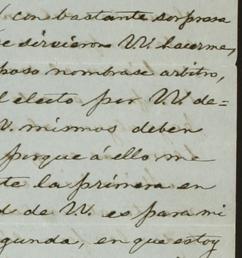 con bastante sorpresa
se sirvieron VV. hacerme,
poso nombrase arbitro,
l electo por VV. de-
V. mismos deben
porque á ello me
te la primera en
d de VV. es para mi
gunda, en que estoy